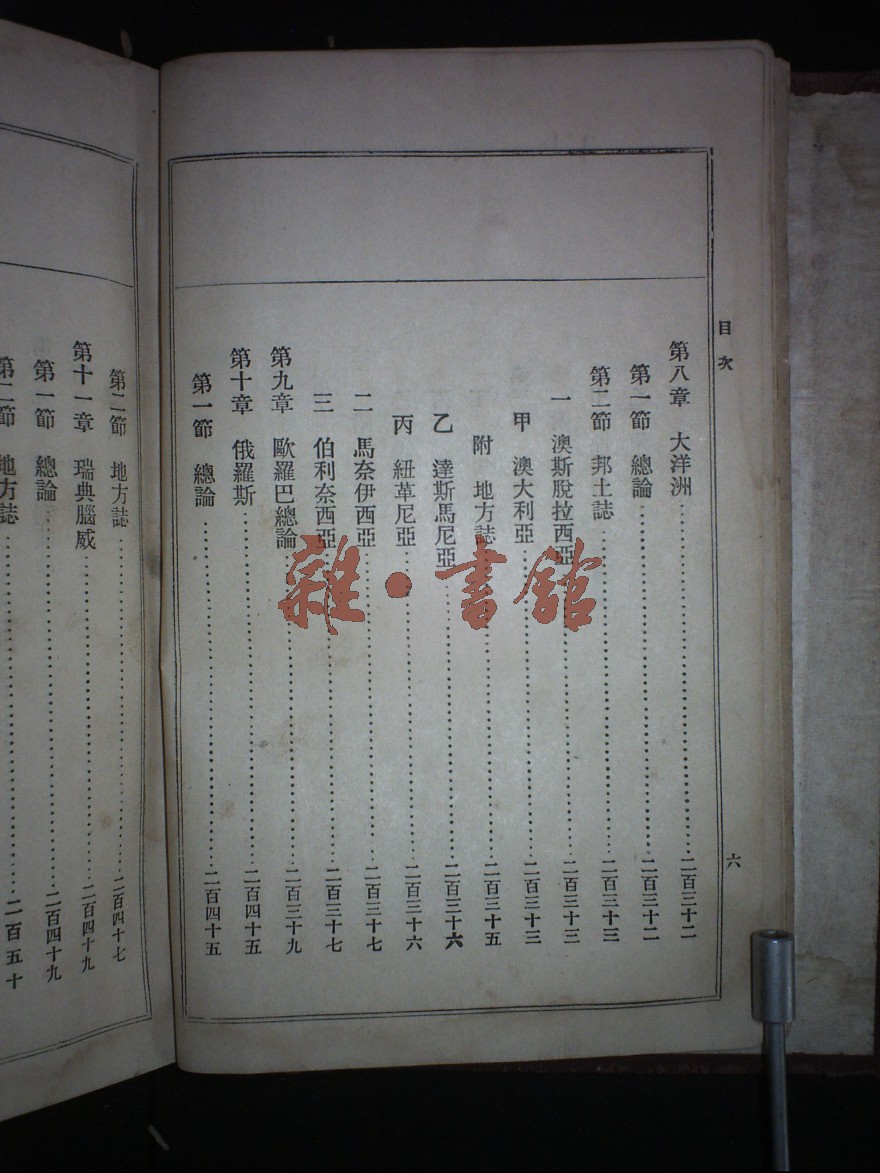 目次
第八章 大洋洲……二百三十二
第一節 總論……二百三十二
第二節 邦土誌……二百三十三
一 澳斯脫拉西亞……二百三十三
甲 澳大利亞……二百三十三
附 地方誌……二百三十五
乙 達斯馬尼亞……二百三十六
丙 紐革尼亞……二百三十六
二 馬奈伊西亞……二百三十七
三 伯利奈西亞……二百三十七
第九章 歐羅巴總論……二百三十九
第十章 俄羅斯……二百四十五
第一節 總論……二百四十五
六
第二節 地方誌……二百四十七
第十一章 瑞典腦威……二百四十九
第一節 總論……二百四十九
第二節 地方誌……二百五十
雜·書館